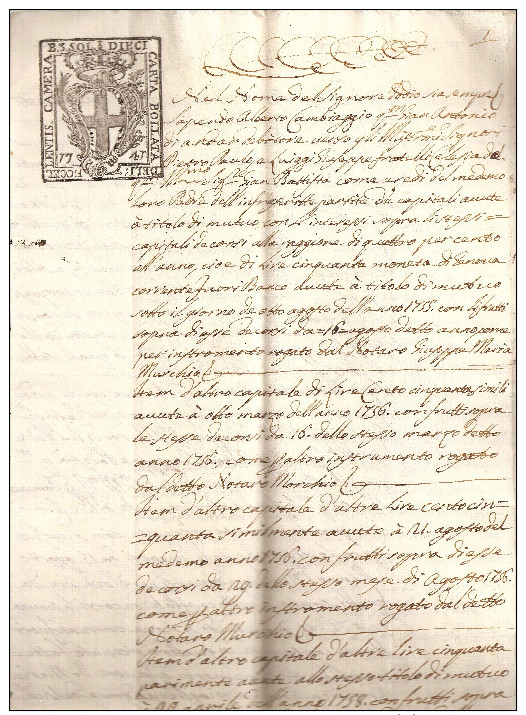 1
B. 3. SOL. DIECI
CARTA BOLLATA
CAMERA
17 41
Nel Nome del Signore Iddio sia sempre
Sapendo Alberto Cambiaggio qm Gian Antonio
di andar debitore verso gli
Pietro Paulo, e Luiggi Giuseppe fratelli
Gian Battista come eredi del medemo
loro Padre dell'infrascritte partite da capitali avute
à titolo di mutuo con li interessi sopra li stessi
capitali decorsi alla raggione di quattro per cento
all'anno, cioè di Lire cinquanta moneta di Genova
corrente fuori banco avute à titolo di mutuo
sotto il giorno de otto agosto dell'anno 1755. con li frutti
sopra di esse decorsi da 16 agosto detto anno come
per instromento rogato dal Notaro Giuseppe Maria
Murchio
Item d'altro capitale di Lire Cento cinquanta simili
avute à otto marzo dell'anno 1756. con frutti sopra
le stesse decorsi da 16. dello stesso marzo detto
anno 1756. come p altro instromento rogato
dal detto Notaro Murchio
Item d'altro capitale d'altre Lire cento cin=
=quanta similmente avute à 21. agosto del
medemo anno 1756. con frutti sopra di esse
decorsi da 29. dello stesso mese di Agosto 1756.
come p altro instromento rogato dal detto
Notaro Murchio
Item d'altro capitale d'altre Lire cinquanta
parimente avute allo stesso titolo di mutuo
à aprile dell'anno 1758. con frutti sopra